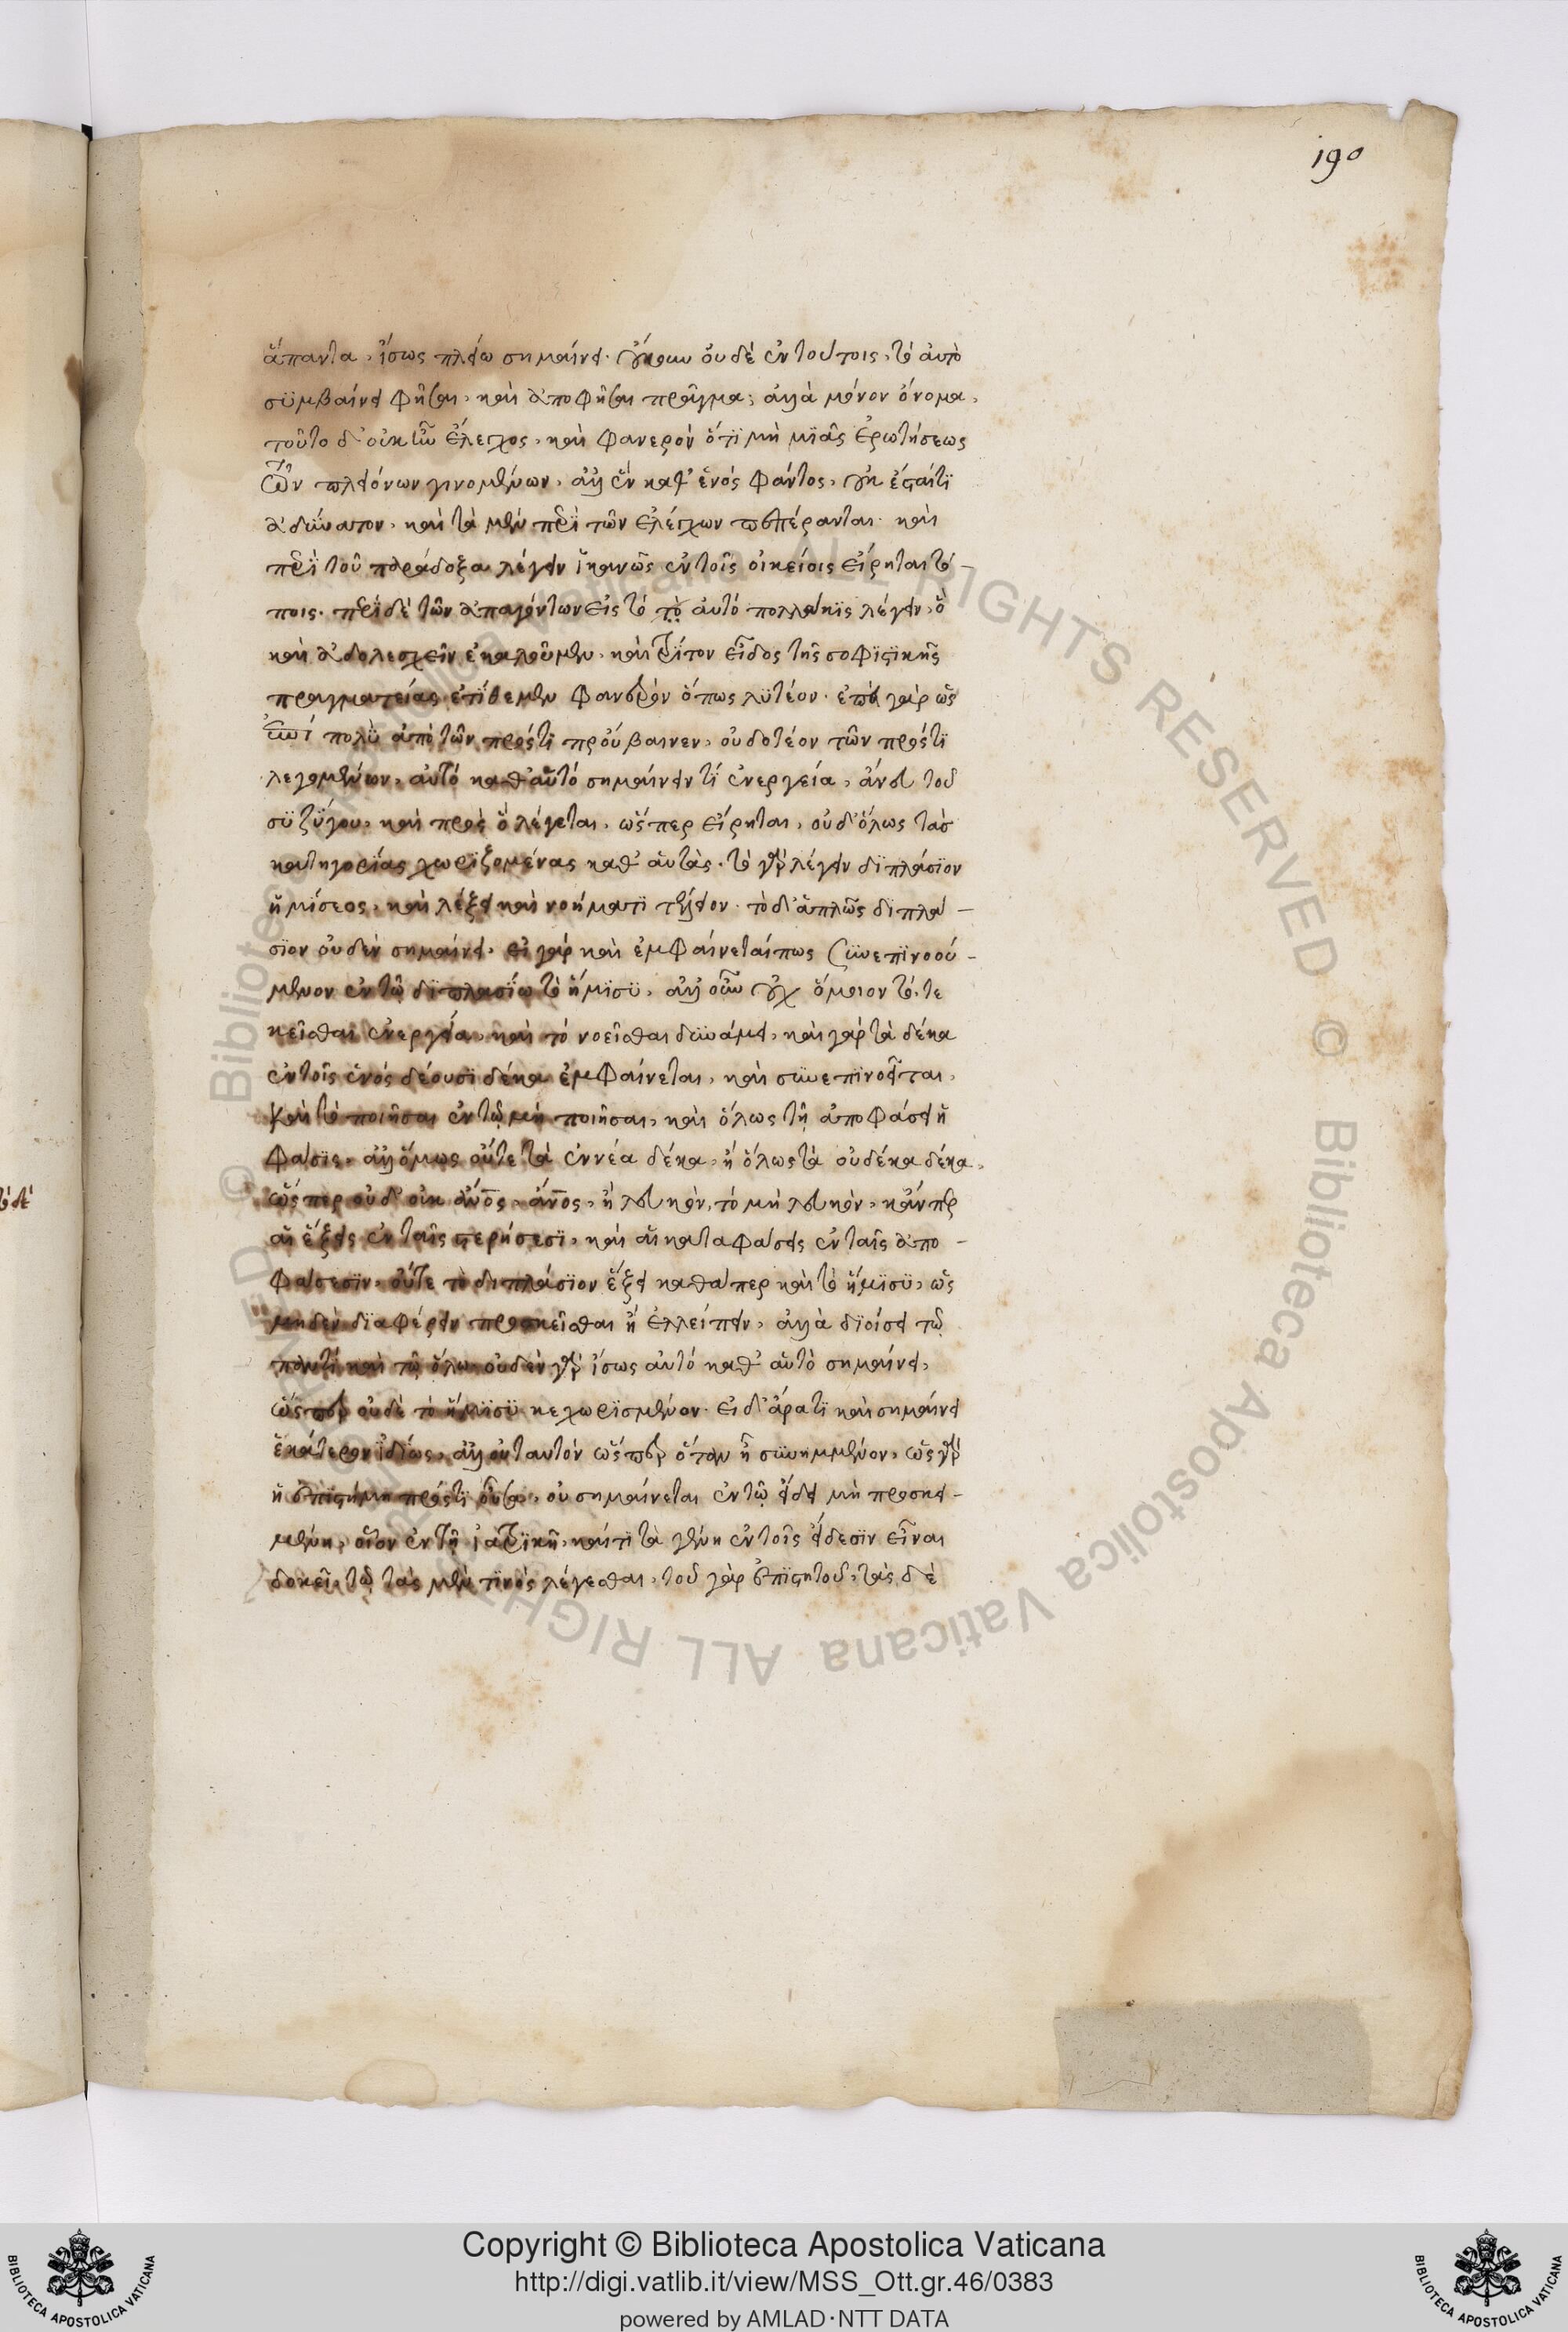 190
ἅπαντα, ἴσως πλείω σημαίνει. οὔκουν οὐδὲ ἐν τούτοις, τὸ αὐτὸ
συμβαίνει φῆσαι, καὶ ἀποφῆσαι πρᾶγμα, ἀλλὰ μόνον ὄνομα,
τοῦτο δ' οὐκ ἦν ἔλεγχος, καὶ φανερὸν ὅτι μὴ μιᾶς ἐρωτήσεως
τῶν πλειόνων γινομένων, ἀλλ' ἓν καθ' ἑνός φάντος, οὐκ ἔσται τι
ἀδύνατον, καὶ τὰ μὲν περὶ τῶν ἐλέγχων πεπέρανται. καὶ
περὶ τοῦ παράδοξα λέγειν ἱκανῶς ἐν τοῖς οἰκείοις εἴρηται τό-
ποις. περὶ δὲ τῶν ἀπαγόντων εἰς τὸ τὸ αὐτό πολλάκις λέγειν, ὃ
καὶ ἀδολεσχεῖν ἐκαλοῦμεν, καὶ τρίτον εἶδος τῆς σοφιστικῆς
πραγματείας ἐτίθεμεν φανερὸν ὅπως λυτέον. ἐπεὶ γὰρ ὡς
ἐπὶ πολὺ ἀπὸ τῶν πρός τι προύβαινεν, οὐ δοτέον τῶν πρός τι
λεγομένων, αὐτό καθ' αὑτό σημαίνειν τί ἐνεργεία, ἄνευ τοῦ
συζύγου, καὶ πρὸς ὃ λέγεται, ὥσπερ εἴρηται, οὐδ' ὅλως τὰς
κατηγορίας χωριζομένας καθ' αὑτὰς. τὸ γὰρ λέγειν διπλάσιον
ἡμίσεος, καὶ λέξει καὶ νοήματι τέλειον. τὸ δ' ἁπλῶς διπλά-
σιον οὐδὲν σημαίνει. εἰ γάρ καὶ ἐμφαίνεταί πως συνεπινοού-
μενον ἐν τῷ διπλασίω τὸ ἥμισυ, ἀλλ' οὖν οὐχ ὅμοιον τό, τε
κεῖσθαι ἐνεργεία, καὶ τό νοεῖσθαι δυνάμει, καὶ γάρ τὰ δέκα
ἐν τοῖς ἑνός δέουσι δέκα ἐμφαίνεται, καὶ συνεπινοεῖται,
καὶ τὸ ποιῆσαι ἐν τῷ μὴ ποιῆσαι, καὶ ὅλως τῇ ἀποφάσει ἡ
φάσις, ἀλλ' ὅμως οὔτε τὰ ἐννέα δέκα, ἢ ὅλως τὰ οὐ δέκα δέκα,
ὥσπερ οὐδ' οὐκ ἄνος, ἄνος, ἢ λευκὸν, τό μὴ λευκὸν, κἄνπερ
αἱ ἕξεις ἐν ταῖς στερήσεσι, καὶ αἱ καταφάσεις ἐν ταῖς ἀπο-
φάσεσιν, οὔτε τὸ διπλάσιον ἕξει καθάπερ καὶ τὸ ἥμισυ, ὡς
μηδὲν διαφέρειν προσκεῖσθαι ἢ ἐλλείπειν, ἀλλὰ διοίσει τῷ
παντὶ καὶ τῷ ὅλω, οὐδὲν γὰρ ἴσως αὐτό καθ' αὑτὸ σημαίνει,
ὥσπερ οὐδὲ τὸ ἥμισυ κεχωρισμένον. εἰ δ' ἄρα τι καὶ σημαίνει
ἑκάτερον ἰδίως, ἀλλ' οὐ ταυτὸν ὥσπερ ὅταν ἦ συνημμένον, ὡς γὰρ
ἡ ἐπιστήμη πρός τι οὖσα, οὐ σημαίνεται ἐν τῷ εἴδει μὴ προσκει-
μένη, οἷον ἐν τῇ ἰατρικῇ, καίτι τὰ γένη ἐν τοῖς εἴδεσιν εἶναι
δοκεῖ, τῷ τὰς μὲν τινὸς λέγεσθαι, τοῦ γὰρ ἐπιστητοῦ, τὰς δὲ
Copyright © Biblioteca Apostolica Vaticana
http://digi.vatlib.it/view/MSS_Ott.gr.46/0383
powered by AMLAD·NTT DATA